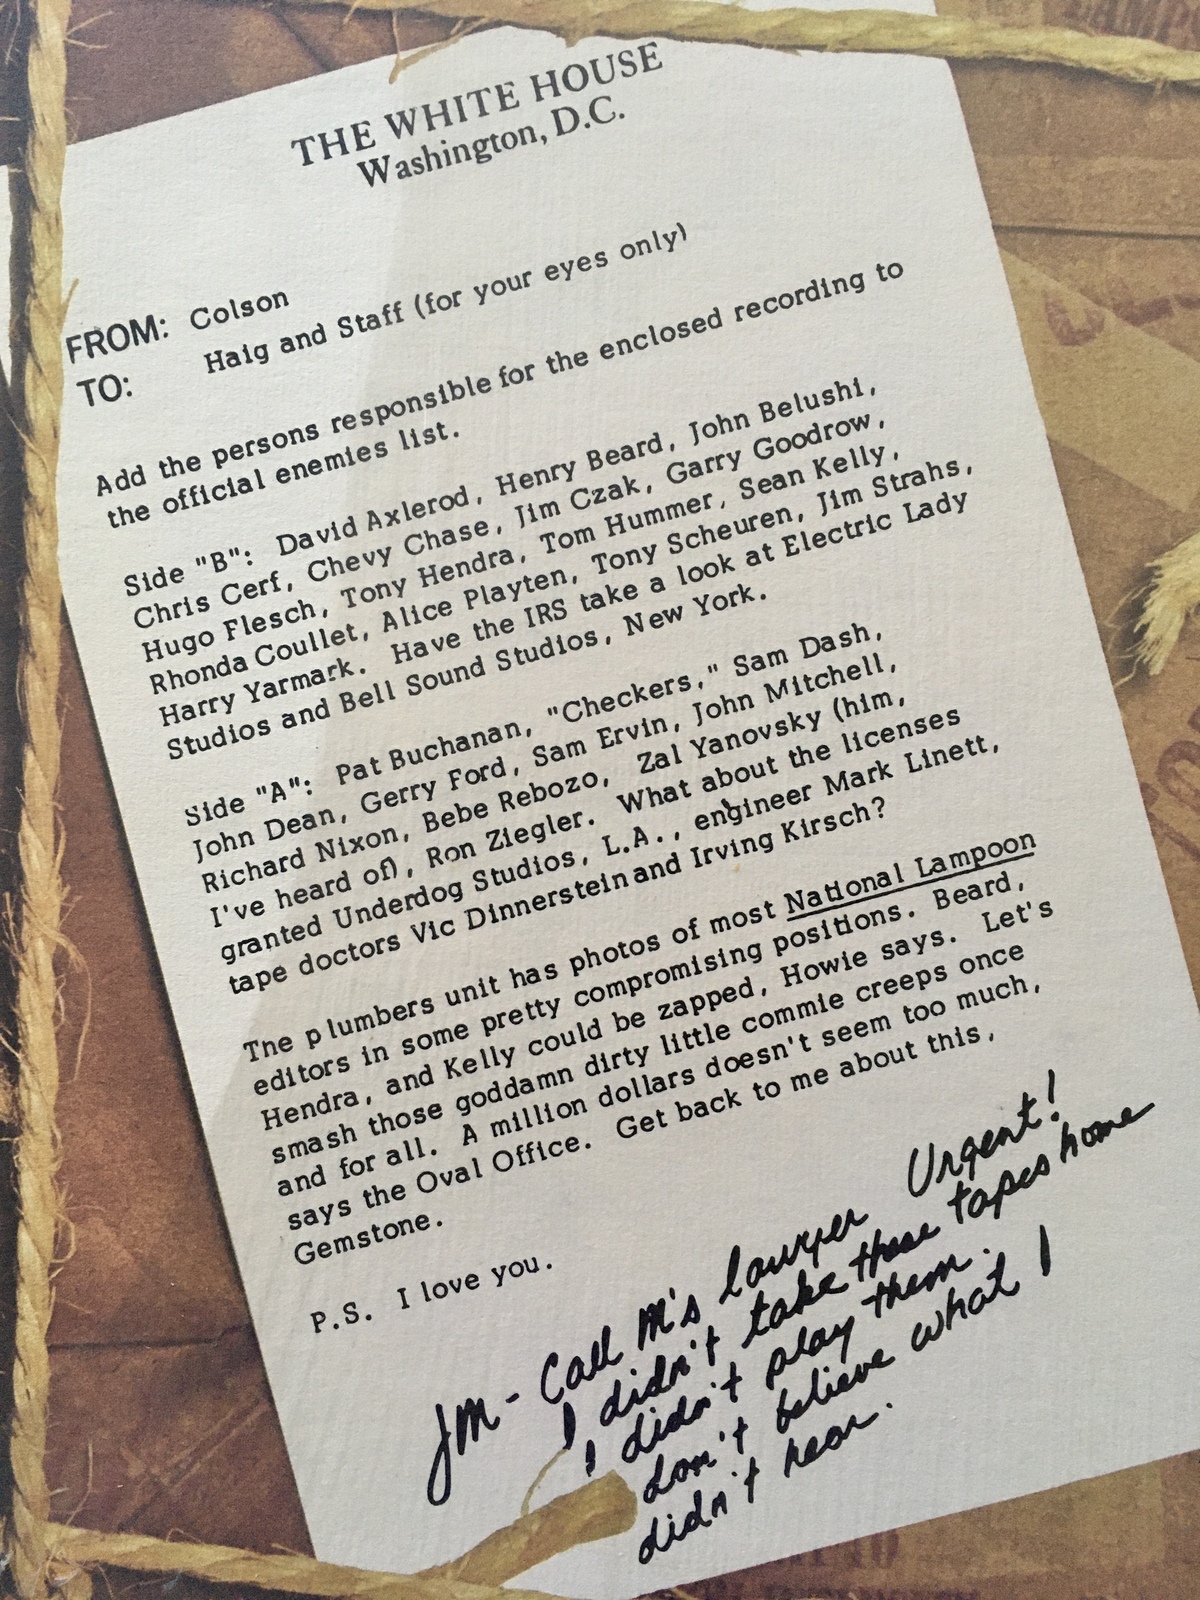 THE WHITE HOUSE
Washington, D.C.
FROM: Colson
TO: Haig and Staff (for your eyes only)
Add the persons responsible for the enclosed recording to
the official enemies list.
Side "B": David Axlerod, Henry Beard, John Belushi,
Chris Cerf, Chevy Chase, Jim Czak, Garry Goodrow,
Hugo Flesch, Tony Hendra, Tom Hummer, Sean Kelly,
Rhonda Coullet, Alice Playten, Tony Scheuren, Jim Strahs,
Harry Yarmark. Have the IRS take a look at Electric Lady
Studios and Bell Sound Studios, New York.
Side "A": Pat Buchanan, "Checkers," Sam Dash,
John Dean, Gerry Ford, Sam Ervin, John Mitchell,
Richard Nixon, Bebe Rebozo, Zal Yanovsky (him,
I've heard of), Ron Ziegler. What about the licenses
granted Underdog Studios, L.A., engineer Mark Linett,
tape doctors Vic Dinnerstein and Irving Kirsch?
The plumbers unit has photos of most National Lampoon
editors in some pretty compromising positions. Beard,
Hendra, and Kelly could be zapped, Howie says. Let's
smash those goddamn dirty little commie creeps once
and for all. A million dollars doesn't seem too much,
says the Oval Office. Get back to me about this,
Gemstone.
P.S. I love you.
Urgent!
JM - Call M's lawyer
I didn't take these tapes home
I didn't play them.
don't believe what I
didn't hear.